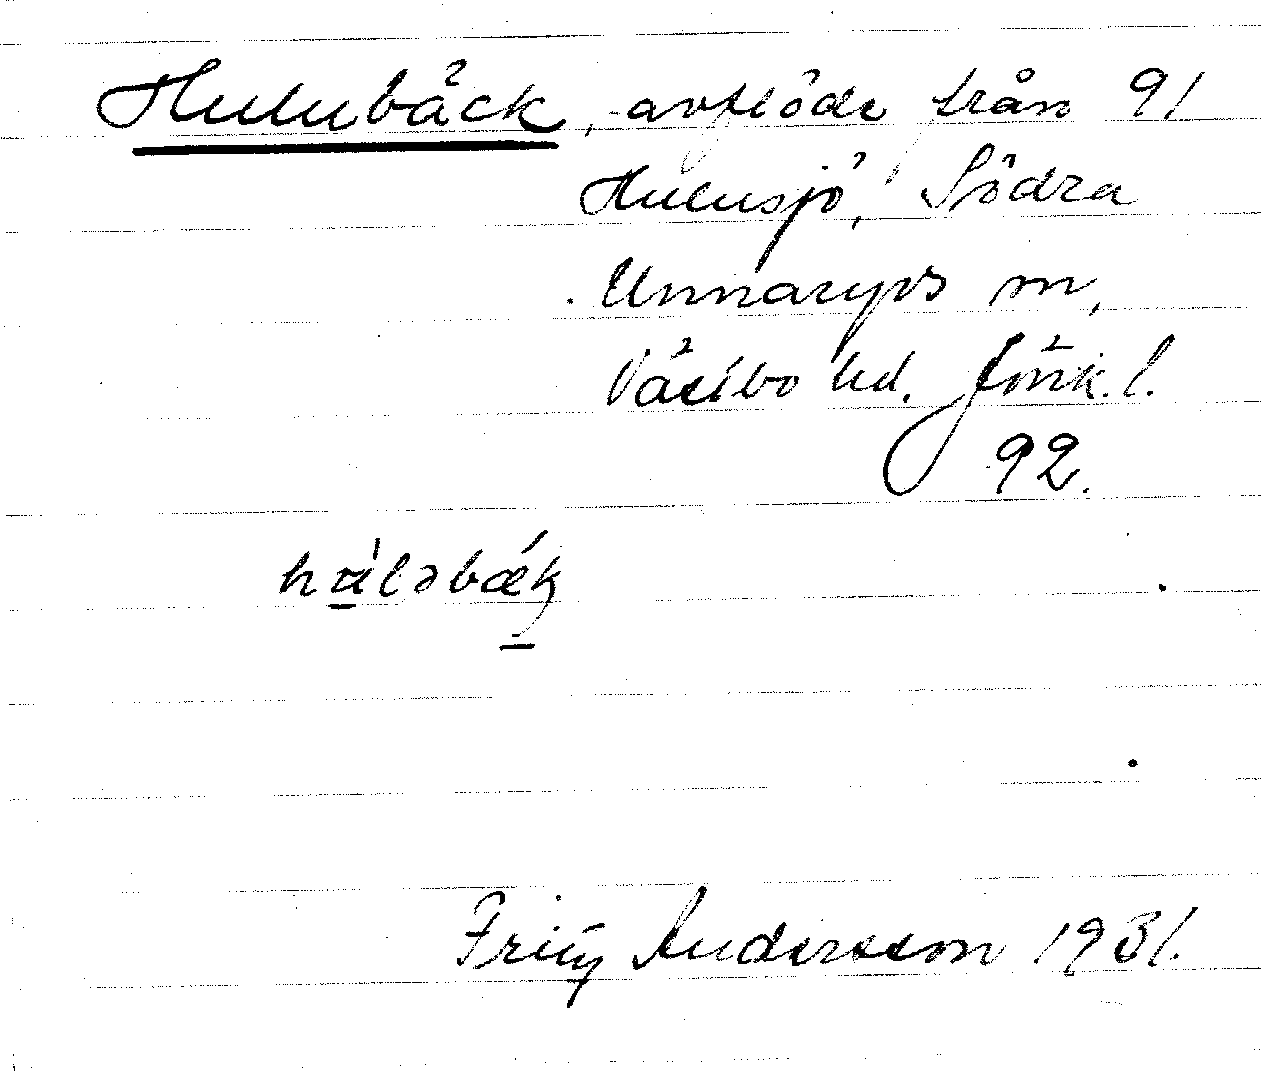 Hulubäck, avflöde från 91
Hulusjö, Södra
Unnaryps m,
Västbo hd. Jönk. l.
92.
Fritz Andersson 1931.